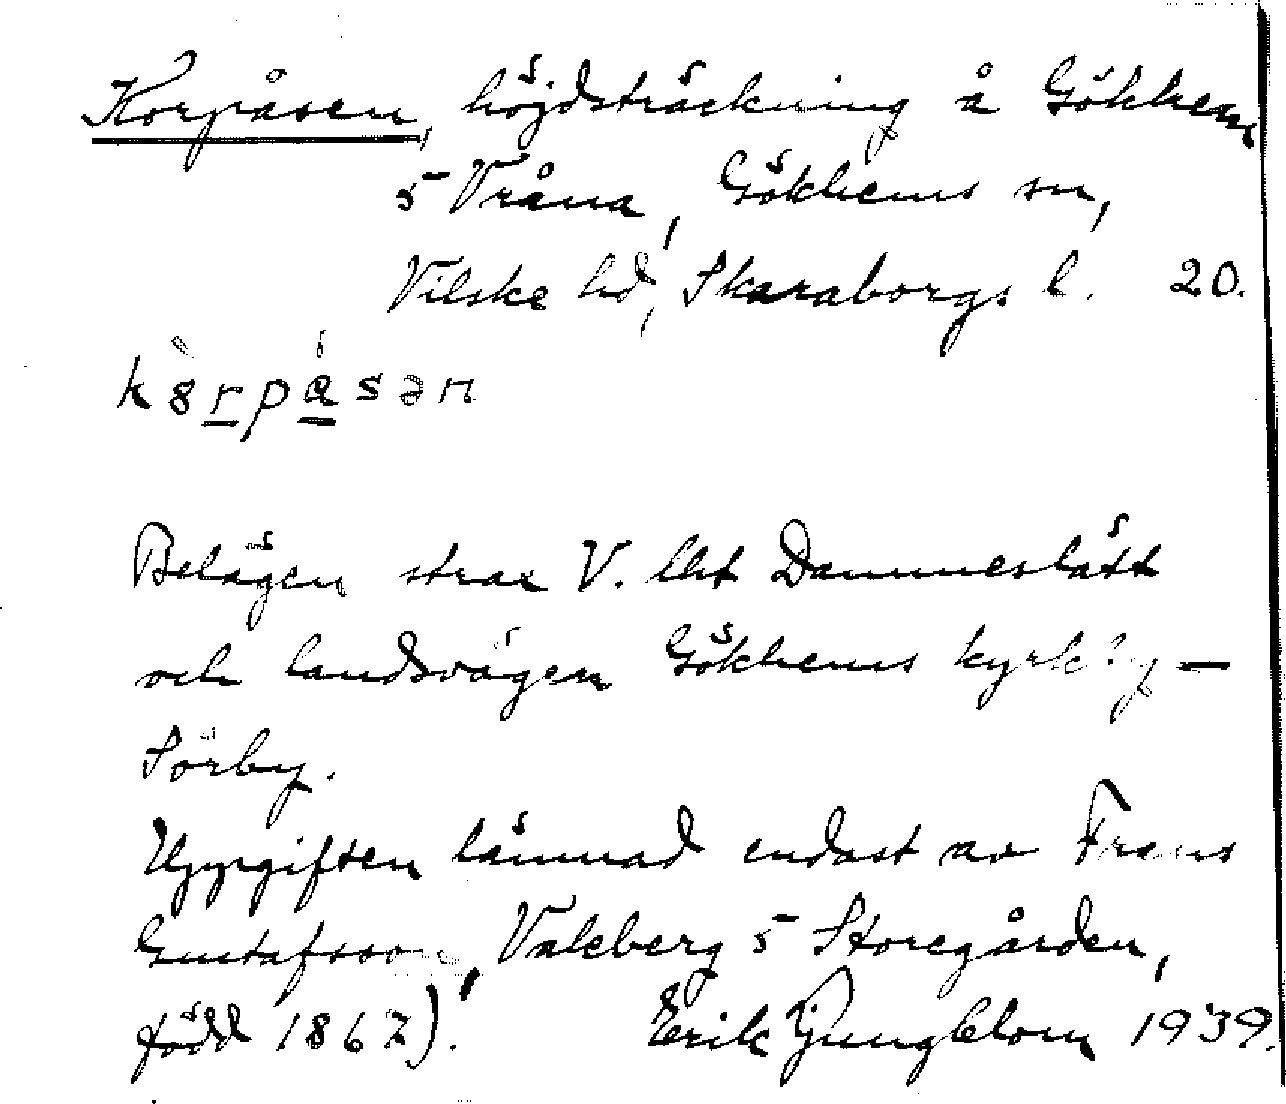 Korpåsen, höjdsträckning å Gökhem
5 Vråna, Gökhems sn,
Vilske hd, Skaraborgs l. 20.
Belägen strax V. lht Dammeslätt
och landsvägen Gökhems kyrkby –
Sörby.
Uppgiften lämnad endast av Frans
Gustafsson, Valeberg 5 Storegården,
född 1862). Erik Ljungblom 1939.